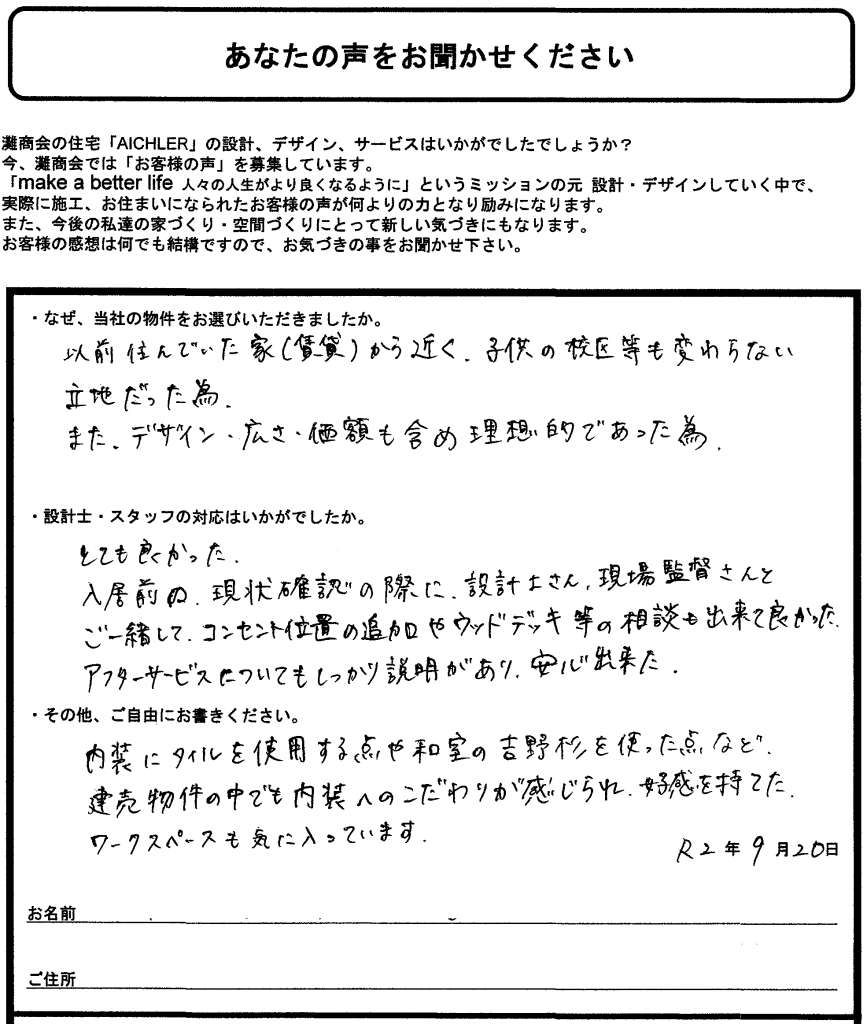 あなたの声をお聞かせください
灘商会の住宅「AICHLER」の設計、デザイン、サービスはいかがでしたでしょうか？
今、灘商会では「お客様の声」を募集しています。
「make a better life 人々の人生がより良くなるように」というミッションの元 設計・デザインしていく中で、
実際に施工、お住まいになられたお客様の声が何よりの力となり励みになります。
また、今後の私達の家づくり・空間づくりにとって新しい気づきにもなります。
お客様の感想は何でも結構ですので、お気づきの事をお聞かせ下さい。
・なぜ、当社の物件をお選びいただきましたか。
以前住んでいた家(賃貸)から近く、子供の校区等も変わらない
立地だった為。
また、デザイン・広さ・価額も含め理想的であった為。
・設計士・スタッフの対応はいかがでしたか。
とても良かった。
入居前の、現状確認の際に、設計士さん、現場監督さんと
ご一緒して、コンセント位置の追加やウッドデッキ等の相談も出来て良かった。
アフターサービスについてもしっかり説明があり、安心出来た。
・その他、ご自由にお書きください。
内装にタイルを使用する点や和室の吉野杉を使った点など、
建売物件の中でも内装へのこだわりが感じられ、好感を持てた。
ワークスペースも気に入っています。
R2年9月20日
お名前
ご住所